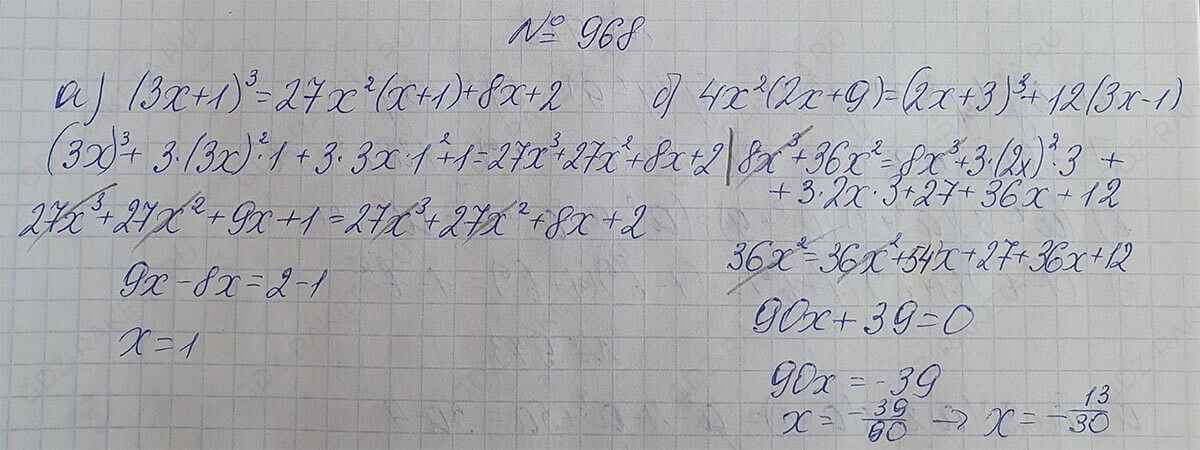 № 968
а) (3x+1)³=27x²(x+1)+8x+2
(3x)³+3·(3x)²·1+3·3x·1²+1=27x³+27x²+8x+2
27x³+27x²+9x+1=27x³+27x²+8x+2
9x-8x=2-1
x=1
б) 4x²(2x+9)=(2x+3)³+12(3x-1)
8x³+36x²=8x³+3·(2x)²·3 +
+3·2x·3+27+36x+12
36x²=36x²+54x+27+36x+12
90x+39=0
90x=-39
x=-39/90 → x=-13/30